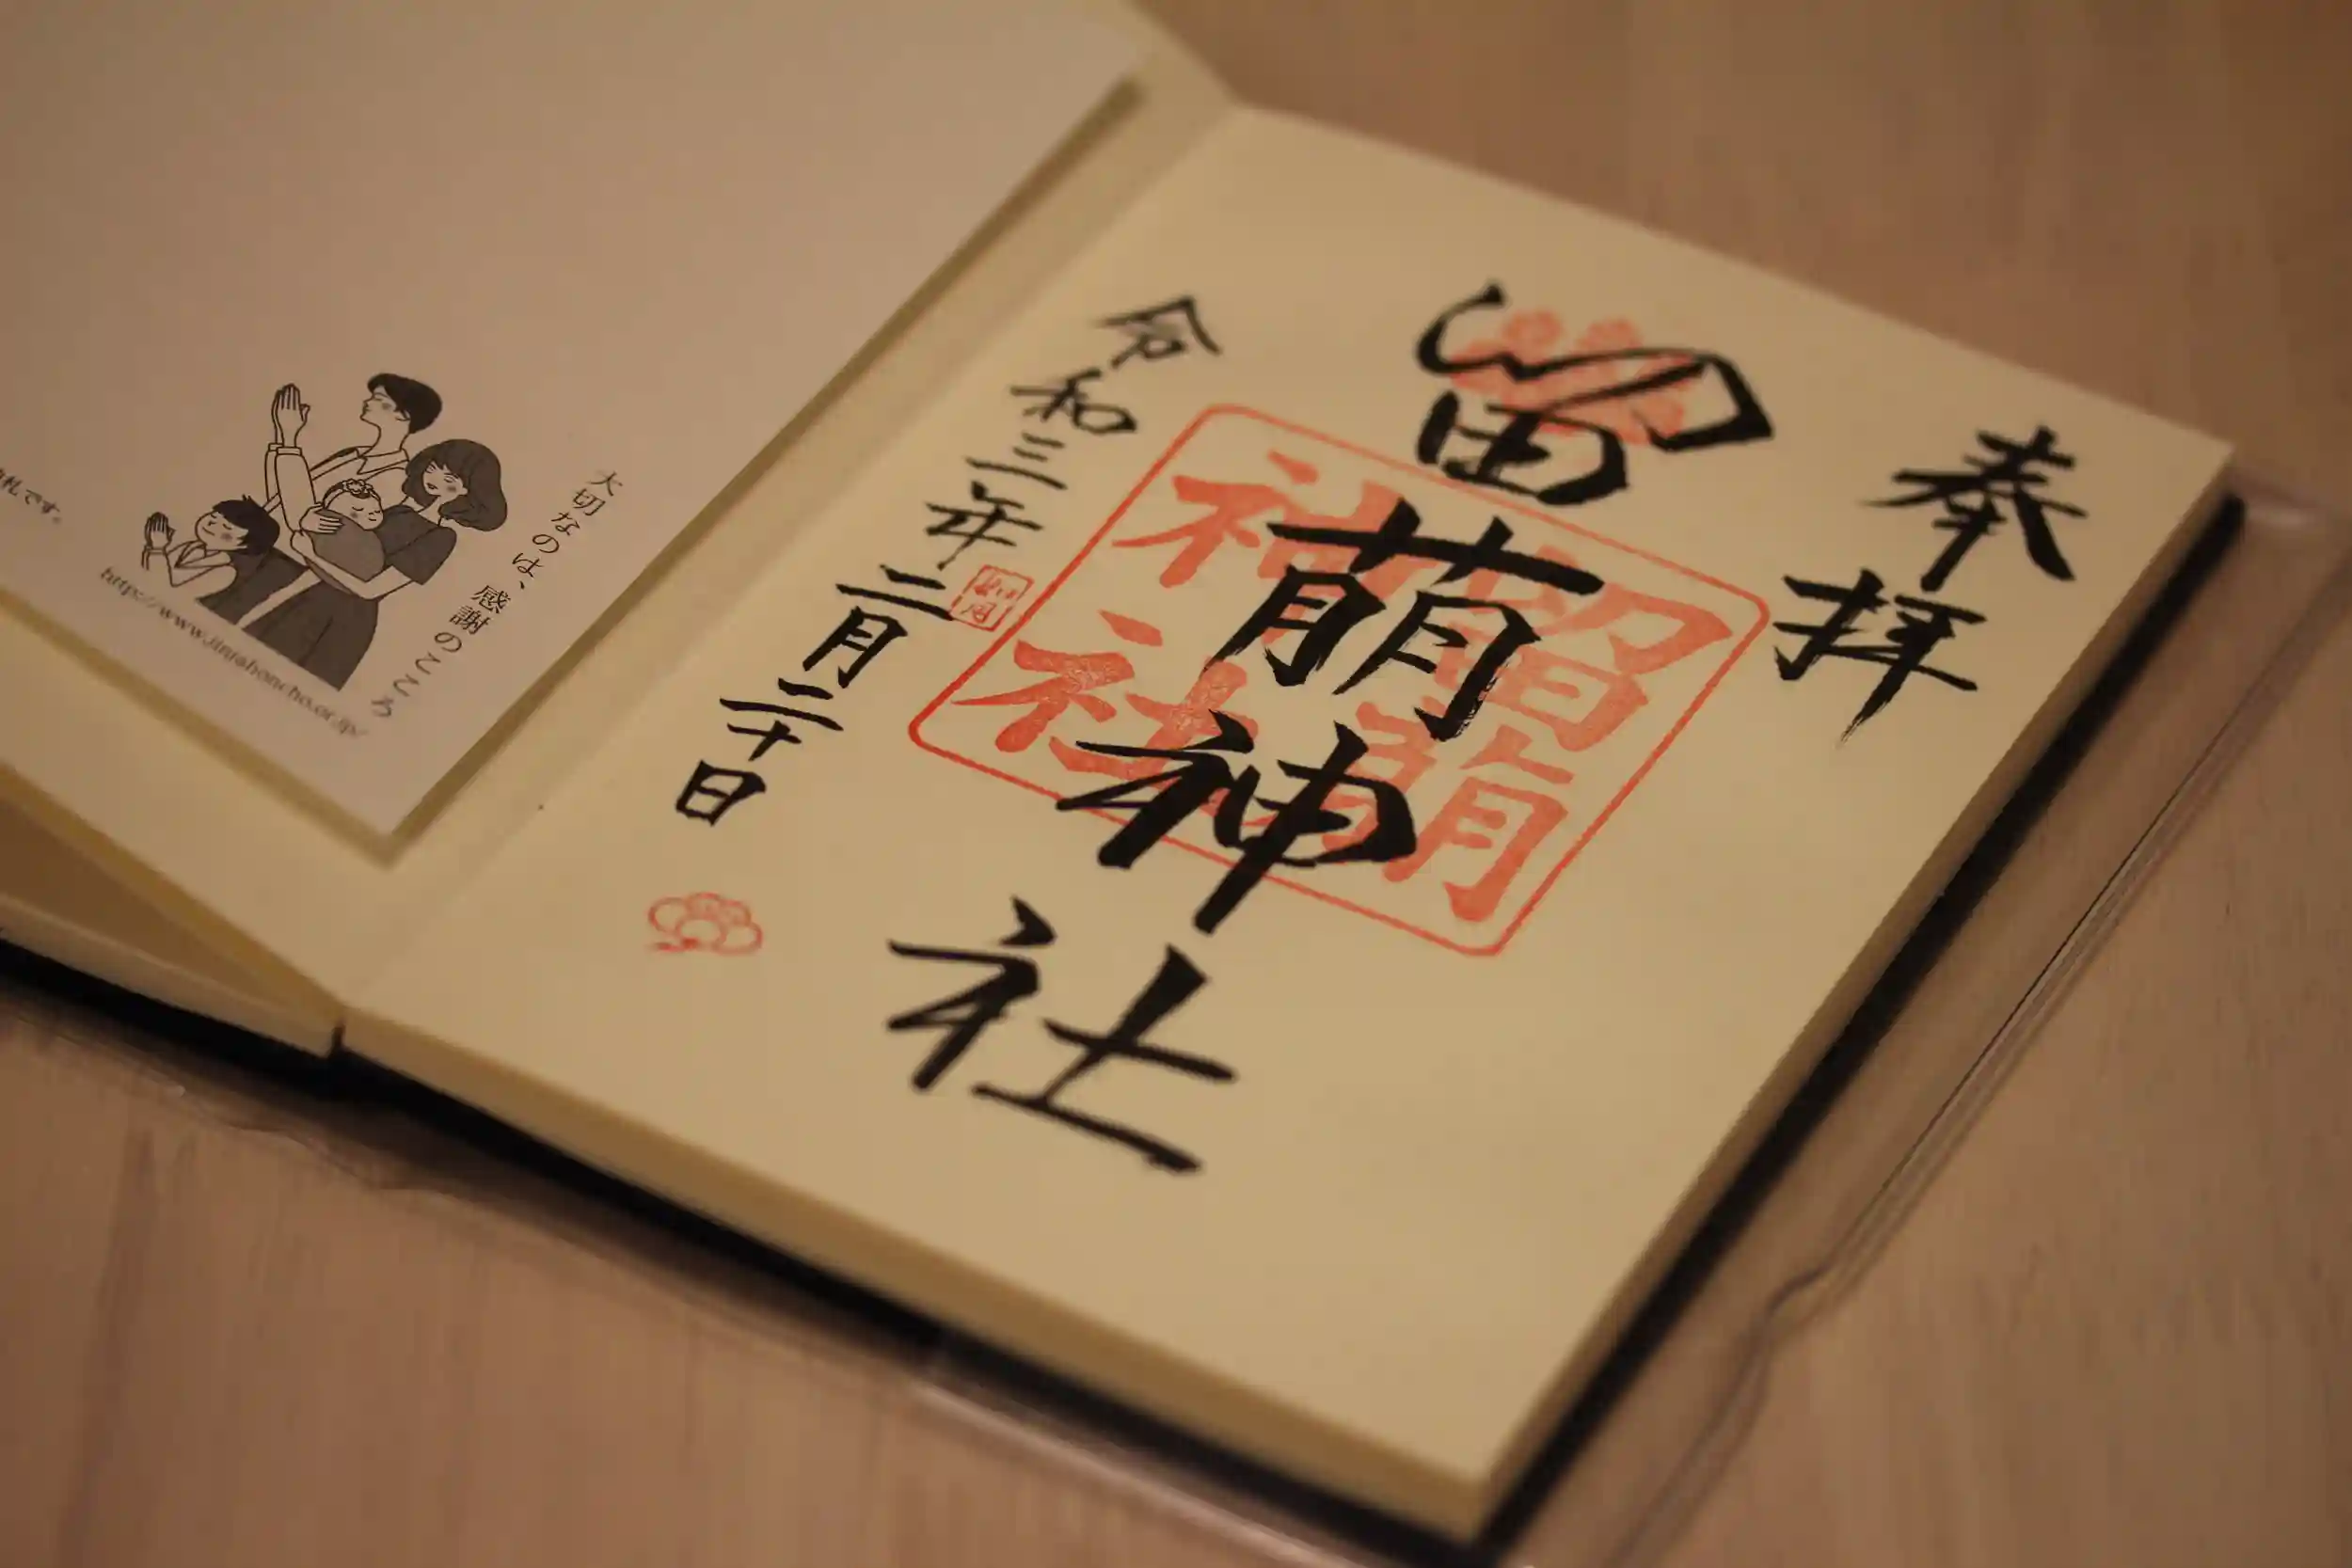 奉拝
留萌神社
留萌
神社
令和三年二月二十日
大切なのは、感謝のこころ
http://www.jinjahoncho.or.jp/
札です。